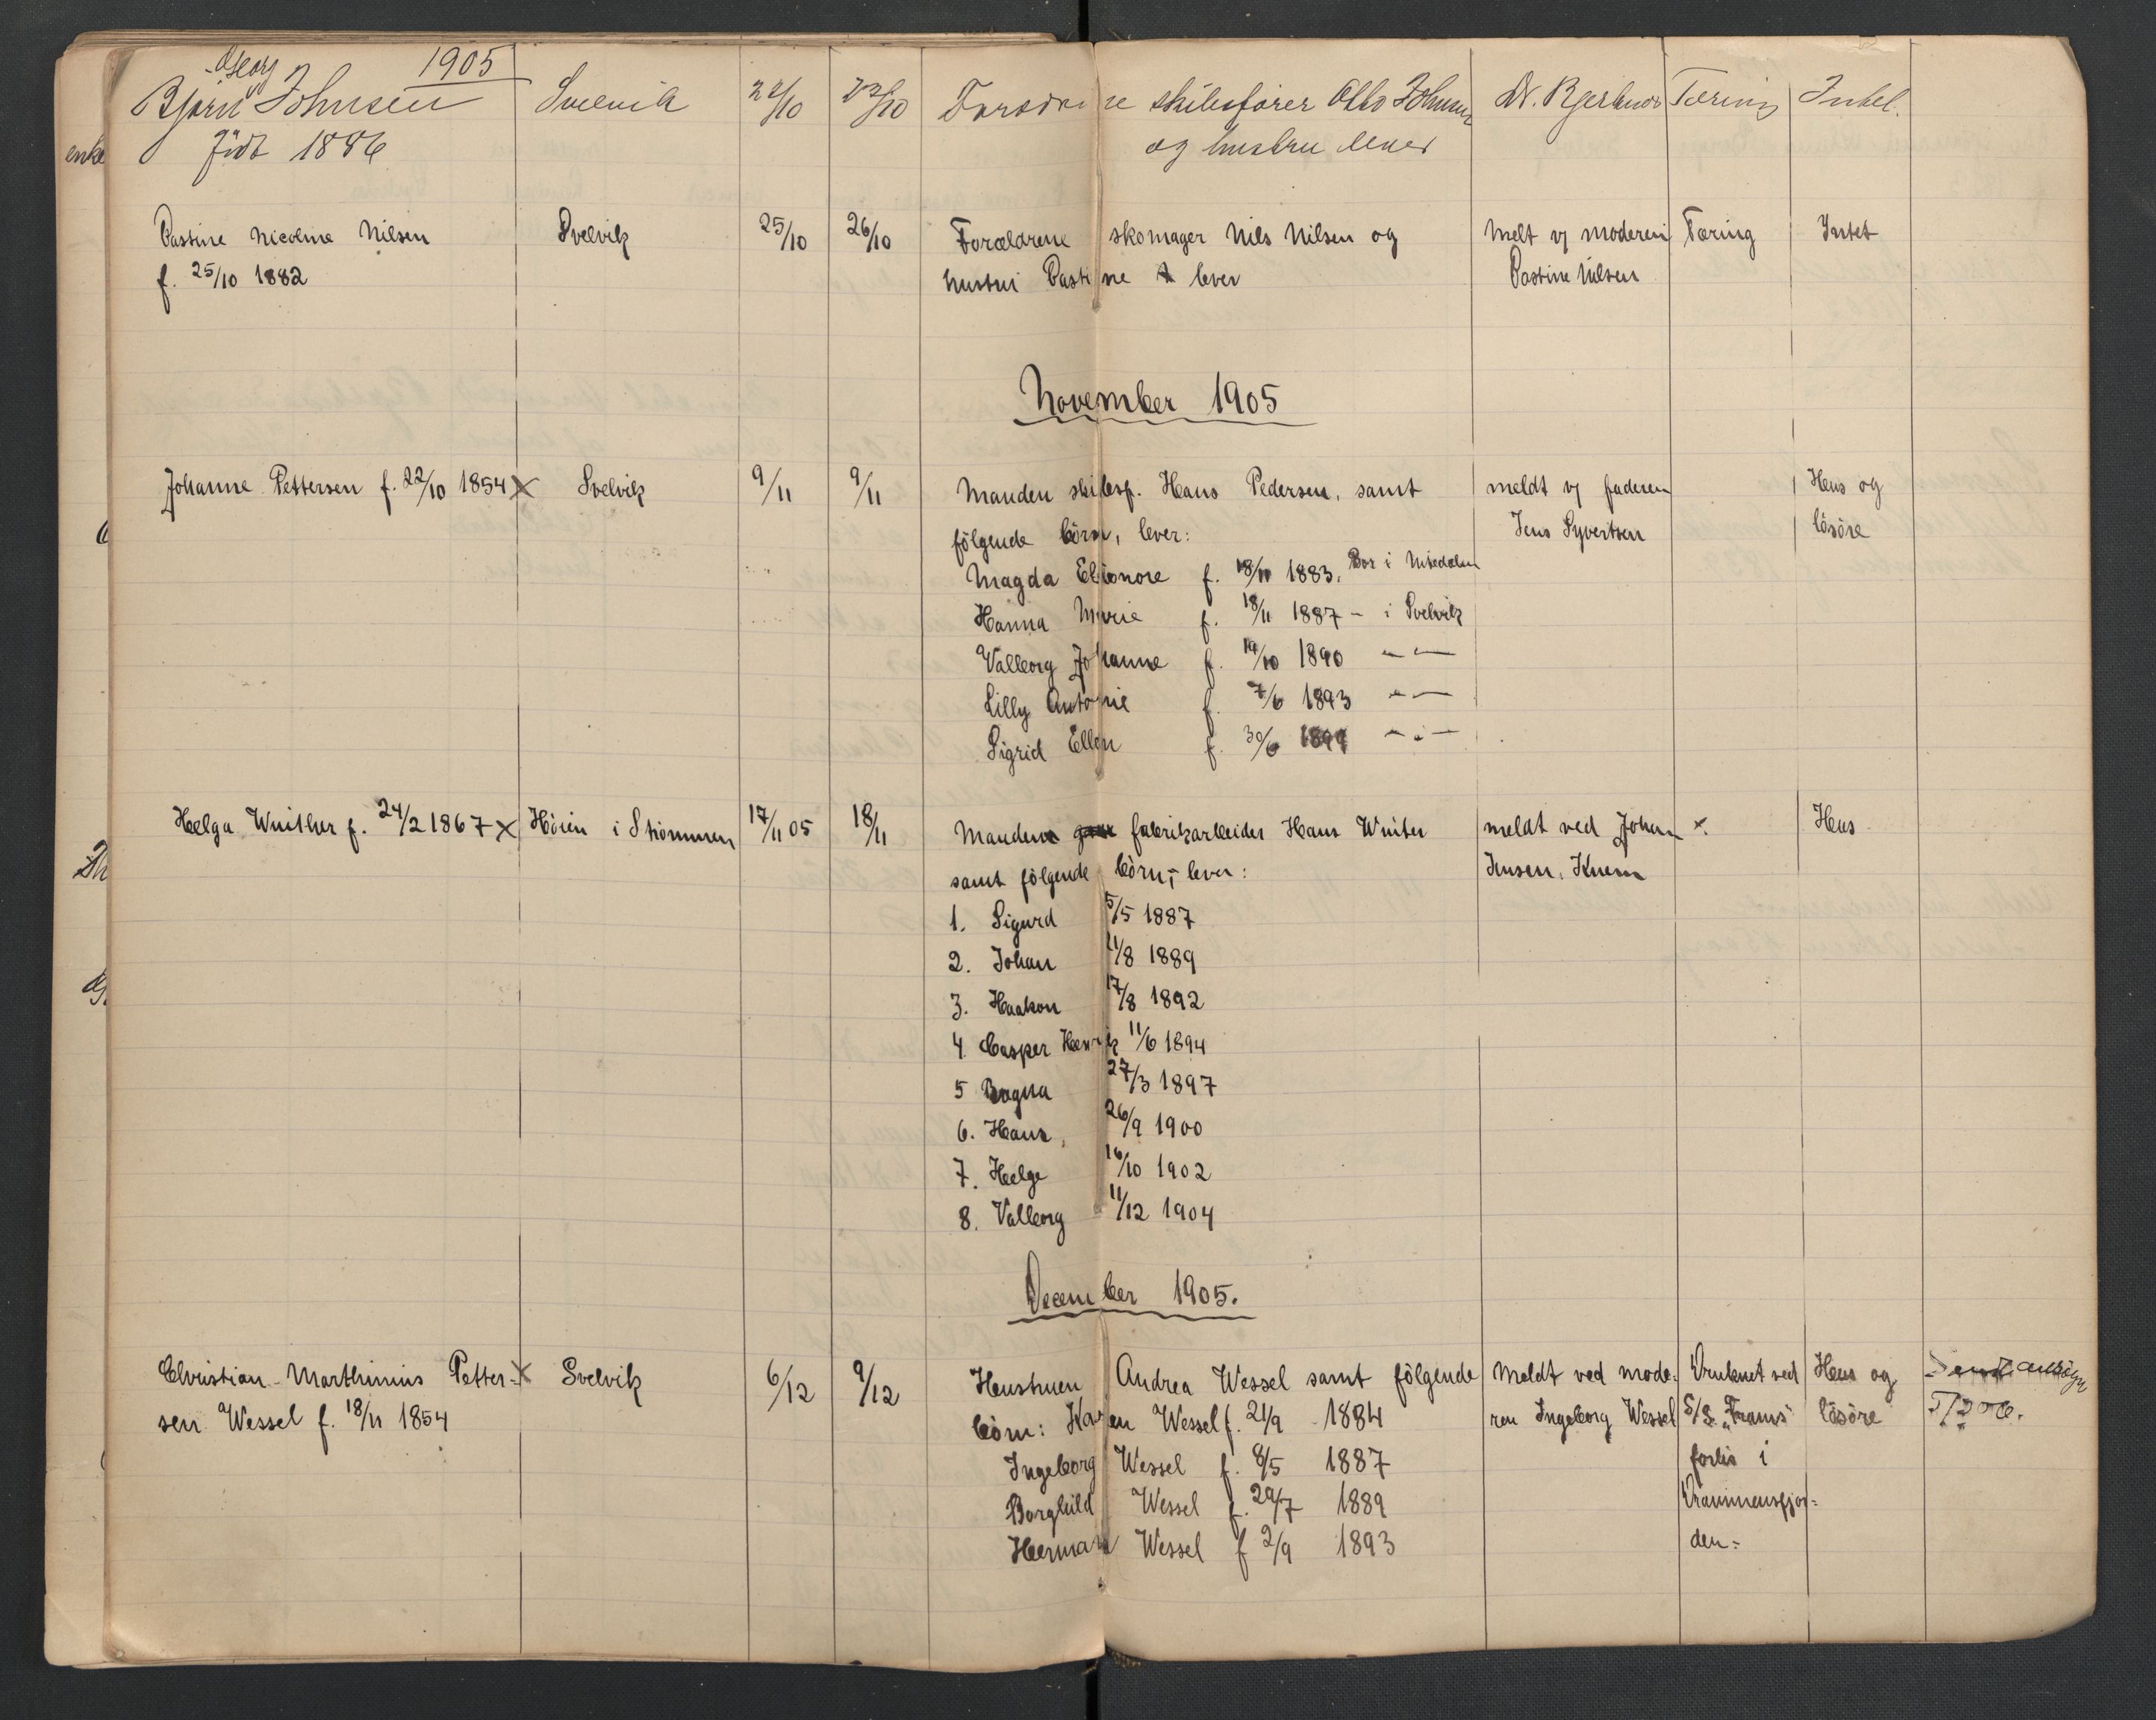 Georg 1905
Bjørn Johnsen Svelvik 22/10 23/10 skibsfører Otto Johnsen Dr. Tæring Intet.
Født 1886 og hustru lever
Pastine Nicoline Nilsen Svelvik 25/10 26/10 Forældrene skomager Nils Nilsen og Melt v/ moderen Tæring Intet
f. 25/10 1882 hustru Pastine lever Pastine Nilsen
November 1905
Johanne Pettersen f. 22/10 1854 x Svelvik 9/11 9/11 Manden skibsf. Hans Pedersen, samt meldt v/ faderen Hus og
følgende börn, lever: Jens Syvertsen lösöre
Magda Elionore f. 1883. Bor i
Hanna Marie f. 18/11 1887 - i Svelvik
Valborg Johanne f. 19/10 1890 - " -
Lilly Antonie f. 7/6 1893 - " -
Sigrid Ellen f. 30/6 1899 - " -
Helga Winther f. 24/2 1867 x Höien i Strömmen 17/11 05 18/11 Manden fabrikarbeider Hans Winter meldt ved Johan x. Hus
samt følgende börn, lever: Jensen, Knem
1. Sigurd 5/5 1887
2. Johan 21/8 1889
3. Haakon 17/8 1892
4. Casper Henrik 11/6 1894
5 Bagna 27/3 1897
6. Hans, 26/9 1900
7. Helge 16/10 1902
8. Valborg 11/12 1904
December 1905.
Christian Marthinius Petter- x Svelvik 6/12 9/12 Hustruen Andrea Wessel samt följgende Meldt ved mode- Druknet ved Hus og
sen Wessel f. 18/11 1854 börn: Karen Wessel f. 21/9 1884 ren Ingeborg Wessel S/S. "Frams" lösöre
Ingeborg Wessel f. 8/5 1887 forlis i
Borghild Wessel f. 29/7 1889 Drammensfjor-
Herman Wessel f 2/9 1893 den-